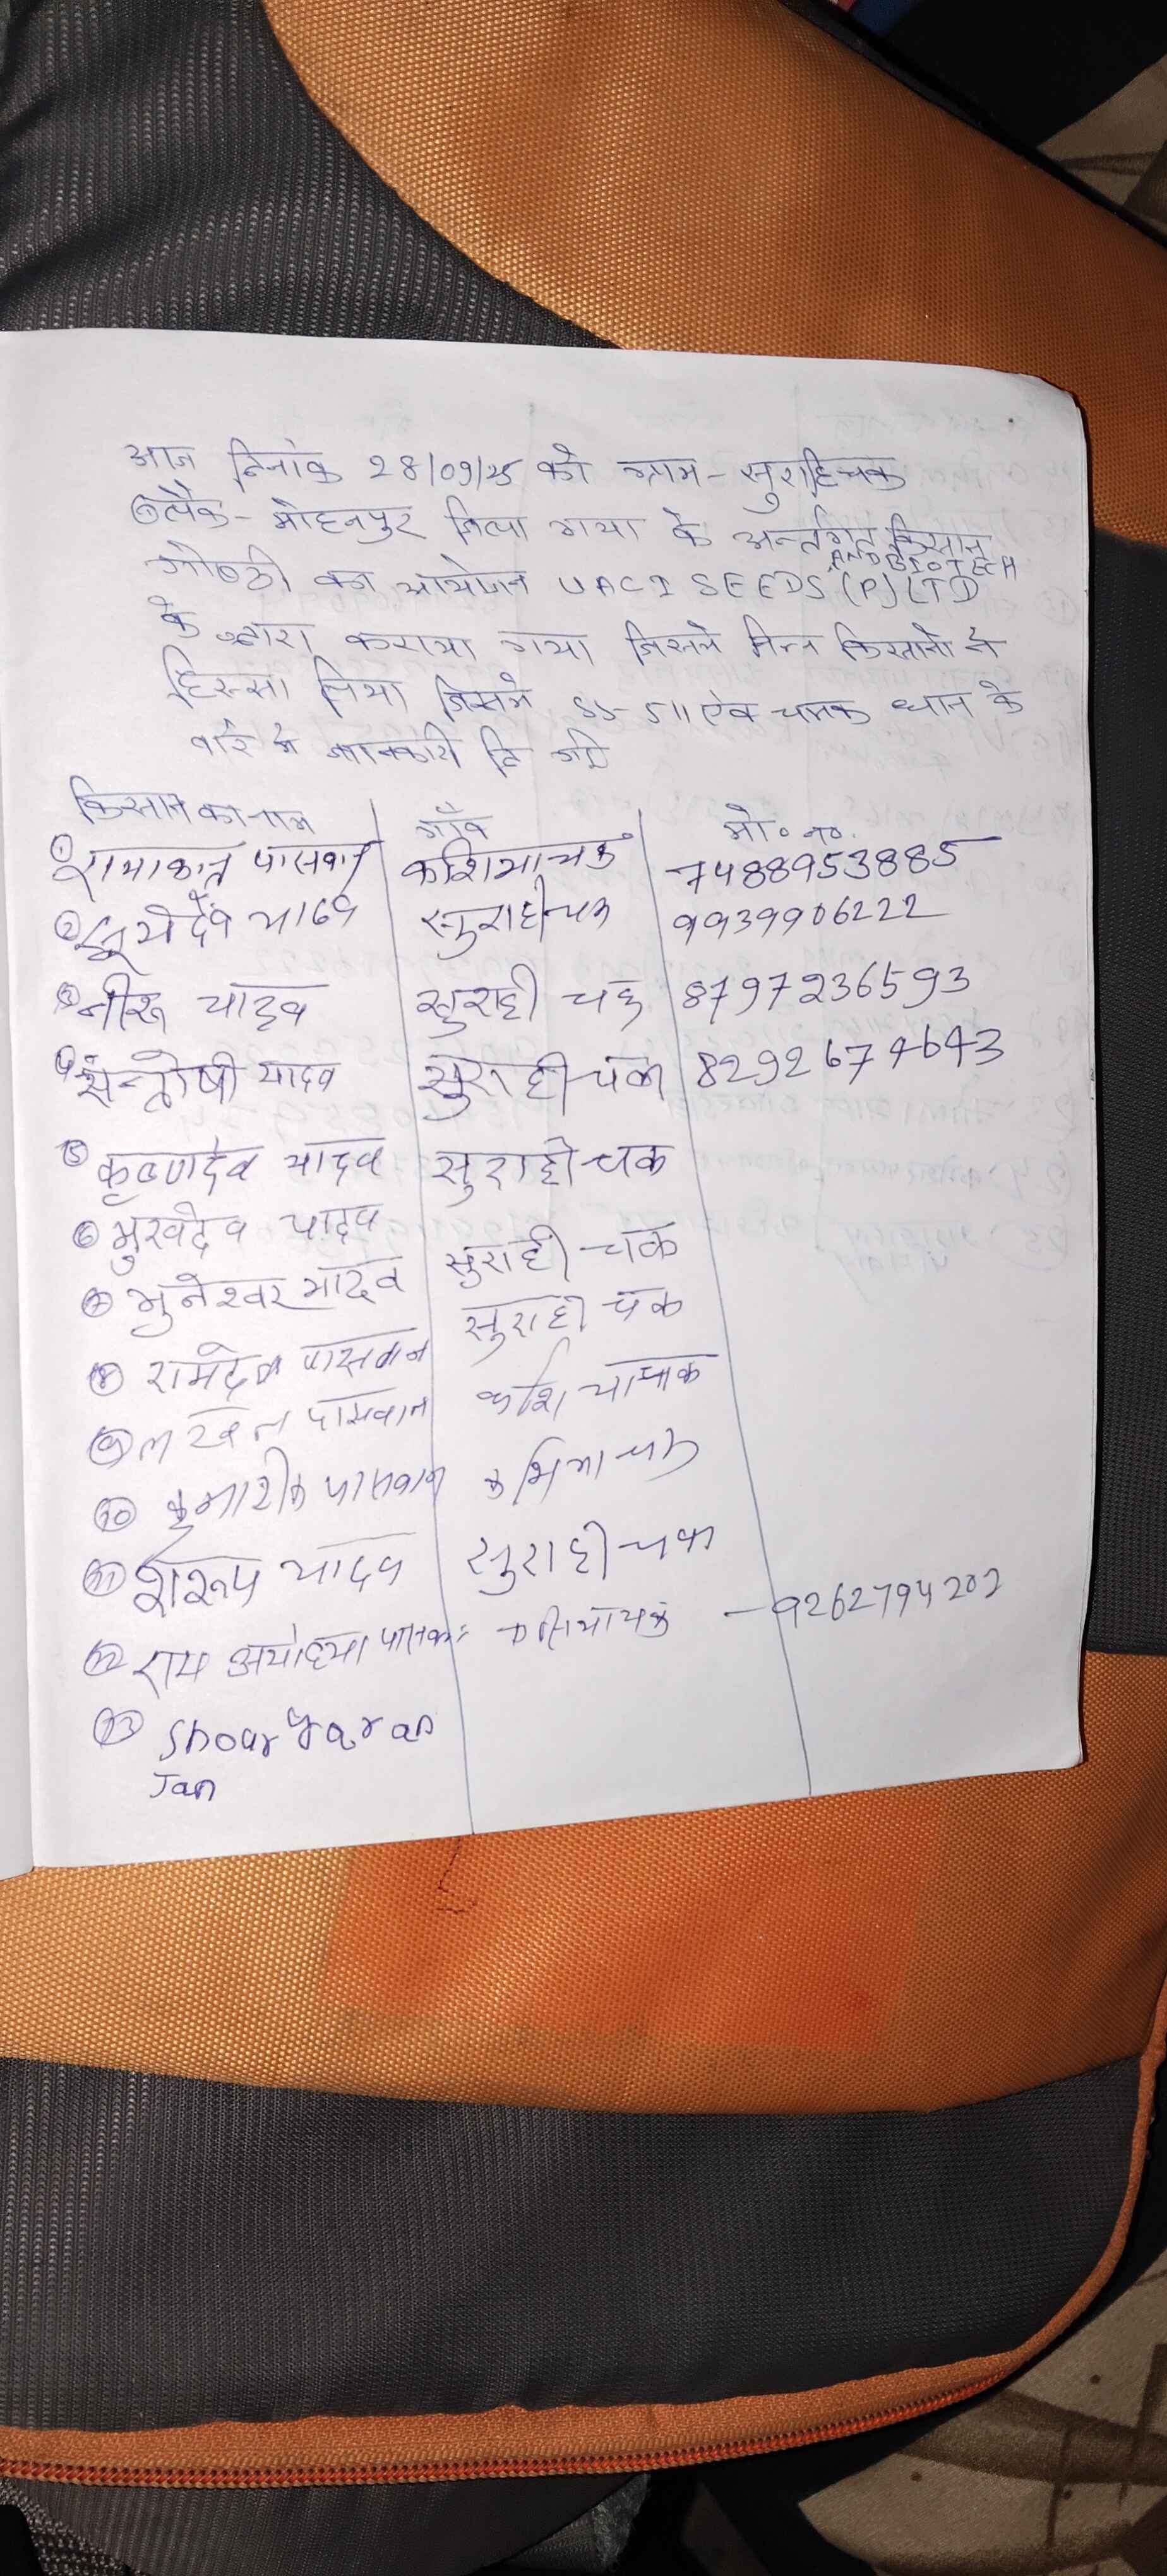 आज दिनांक 28/09/25 को ग्राम - सुराहिचक
ब्लौक - मोहनपुर जिला गया के अर्न्तगत किसान
गोष्ठी का आयोजन UACI SEEDS AND BIOTECH (P) LTD
के द्वारा कराया गया जिसमे निम्न किसानो ने
हिस्सा लिया जिसमे SS-511 ऐंव चमक धान के
बारे मे जानकारी दि गयी
किसान का नाम गाँव मो० no.
① रामाकान्त पासवान कशियाचक 7488953885
② सूर्यदेव यादव सुराहीचक 9939906222
③ नीरू यादव सुराही चक 8797236593
④ सन्तोषी यादव सुराही चक 8292674643
⑤ कृष्णदेव यादव सुराही चक
⑥ मुखदेव यादव सुराही चक
⑦ भुनेश्वर यादव सुराही चक
⑧ रामदेव पासवान कशियाचक
⑨ लखन पासवान कशियाचक
⑩ पासवान
⑪ यादव सुराहीचक
⑫ राम अयोध्या पासवान कसियाचक - 9262794202
⑬
Jan